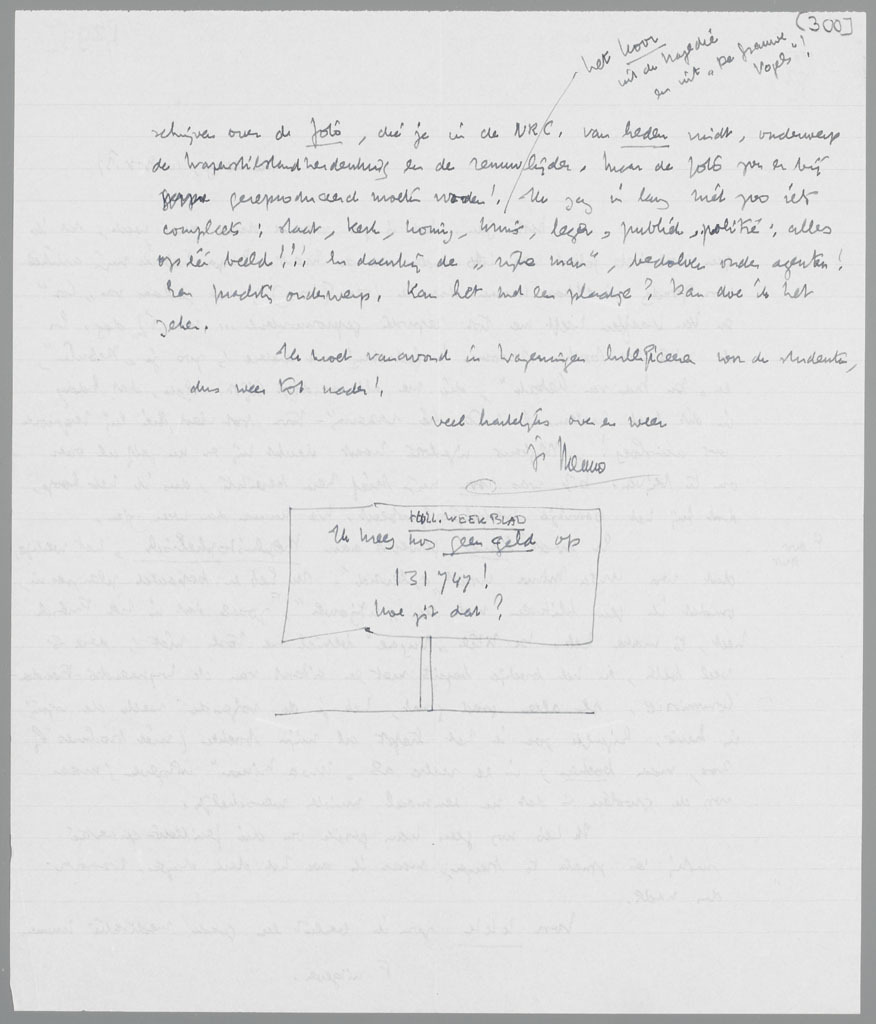 (300]
het koor
uit de tragedie
en uit „De grauwe
Vogels"!
schrijven over de foto, die je in de NRC. van heden vindt, onderwerp
de wapenstilstandherdenking en de
. Maar de foto zou er bij
gereproduceerd moeten worden! Ik zag in lang niet zoo iets
compleets: staat, kerk, koning, kruis, leger, publiek, politie: alles
op één beeld!!! En daarbij de „rijke man", bedolven onder agenten!
Een prachtig onderwerp. Kan het met een plaatje? Dan doe ik het
zeker.
Ik moet vanavond in Wageningen voor de studenten,
dus weer tot nader!
veel hartelijks over en weer
je Menno
HOLL. WEEKBLAD
Ik kreeg nog geen geld op
131747!
hoe zit dat?